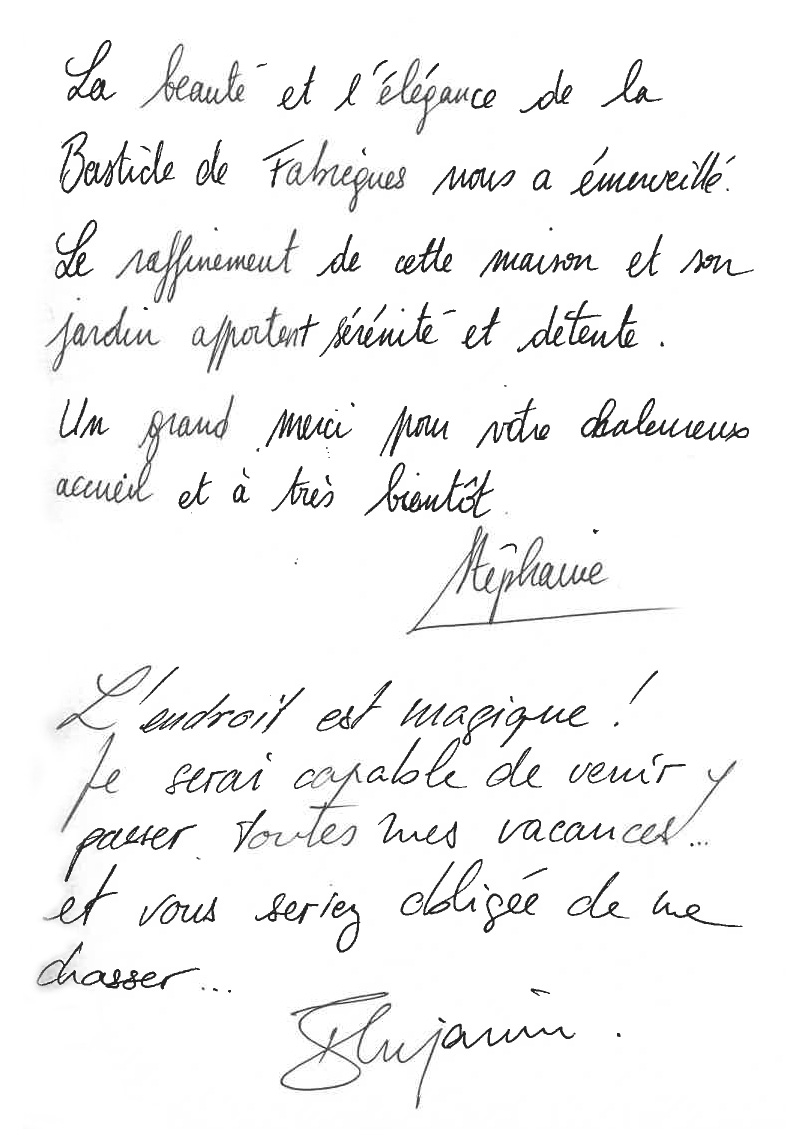 La beauté et l'élégance de la
Bastide de Fabrègues nous a émerveillé.
Le raffinement de cette maison et son
jardin apportent sérénité et détente.
Un grand merci pour votre chaleureux
accueil et à très bientôt
Stéphanie
L'endroit est magique !
Je serai capable de venir y
passer toutes mes vacances...
et vous seriez obligée de me
chasser...
Benjamin.